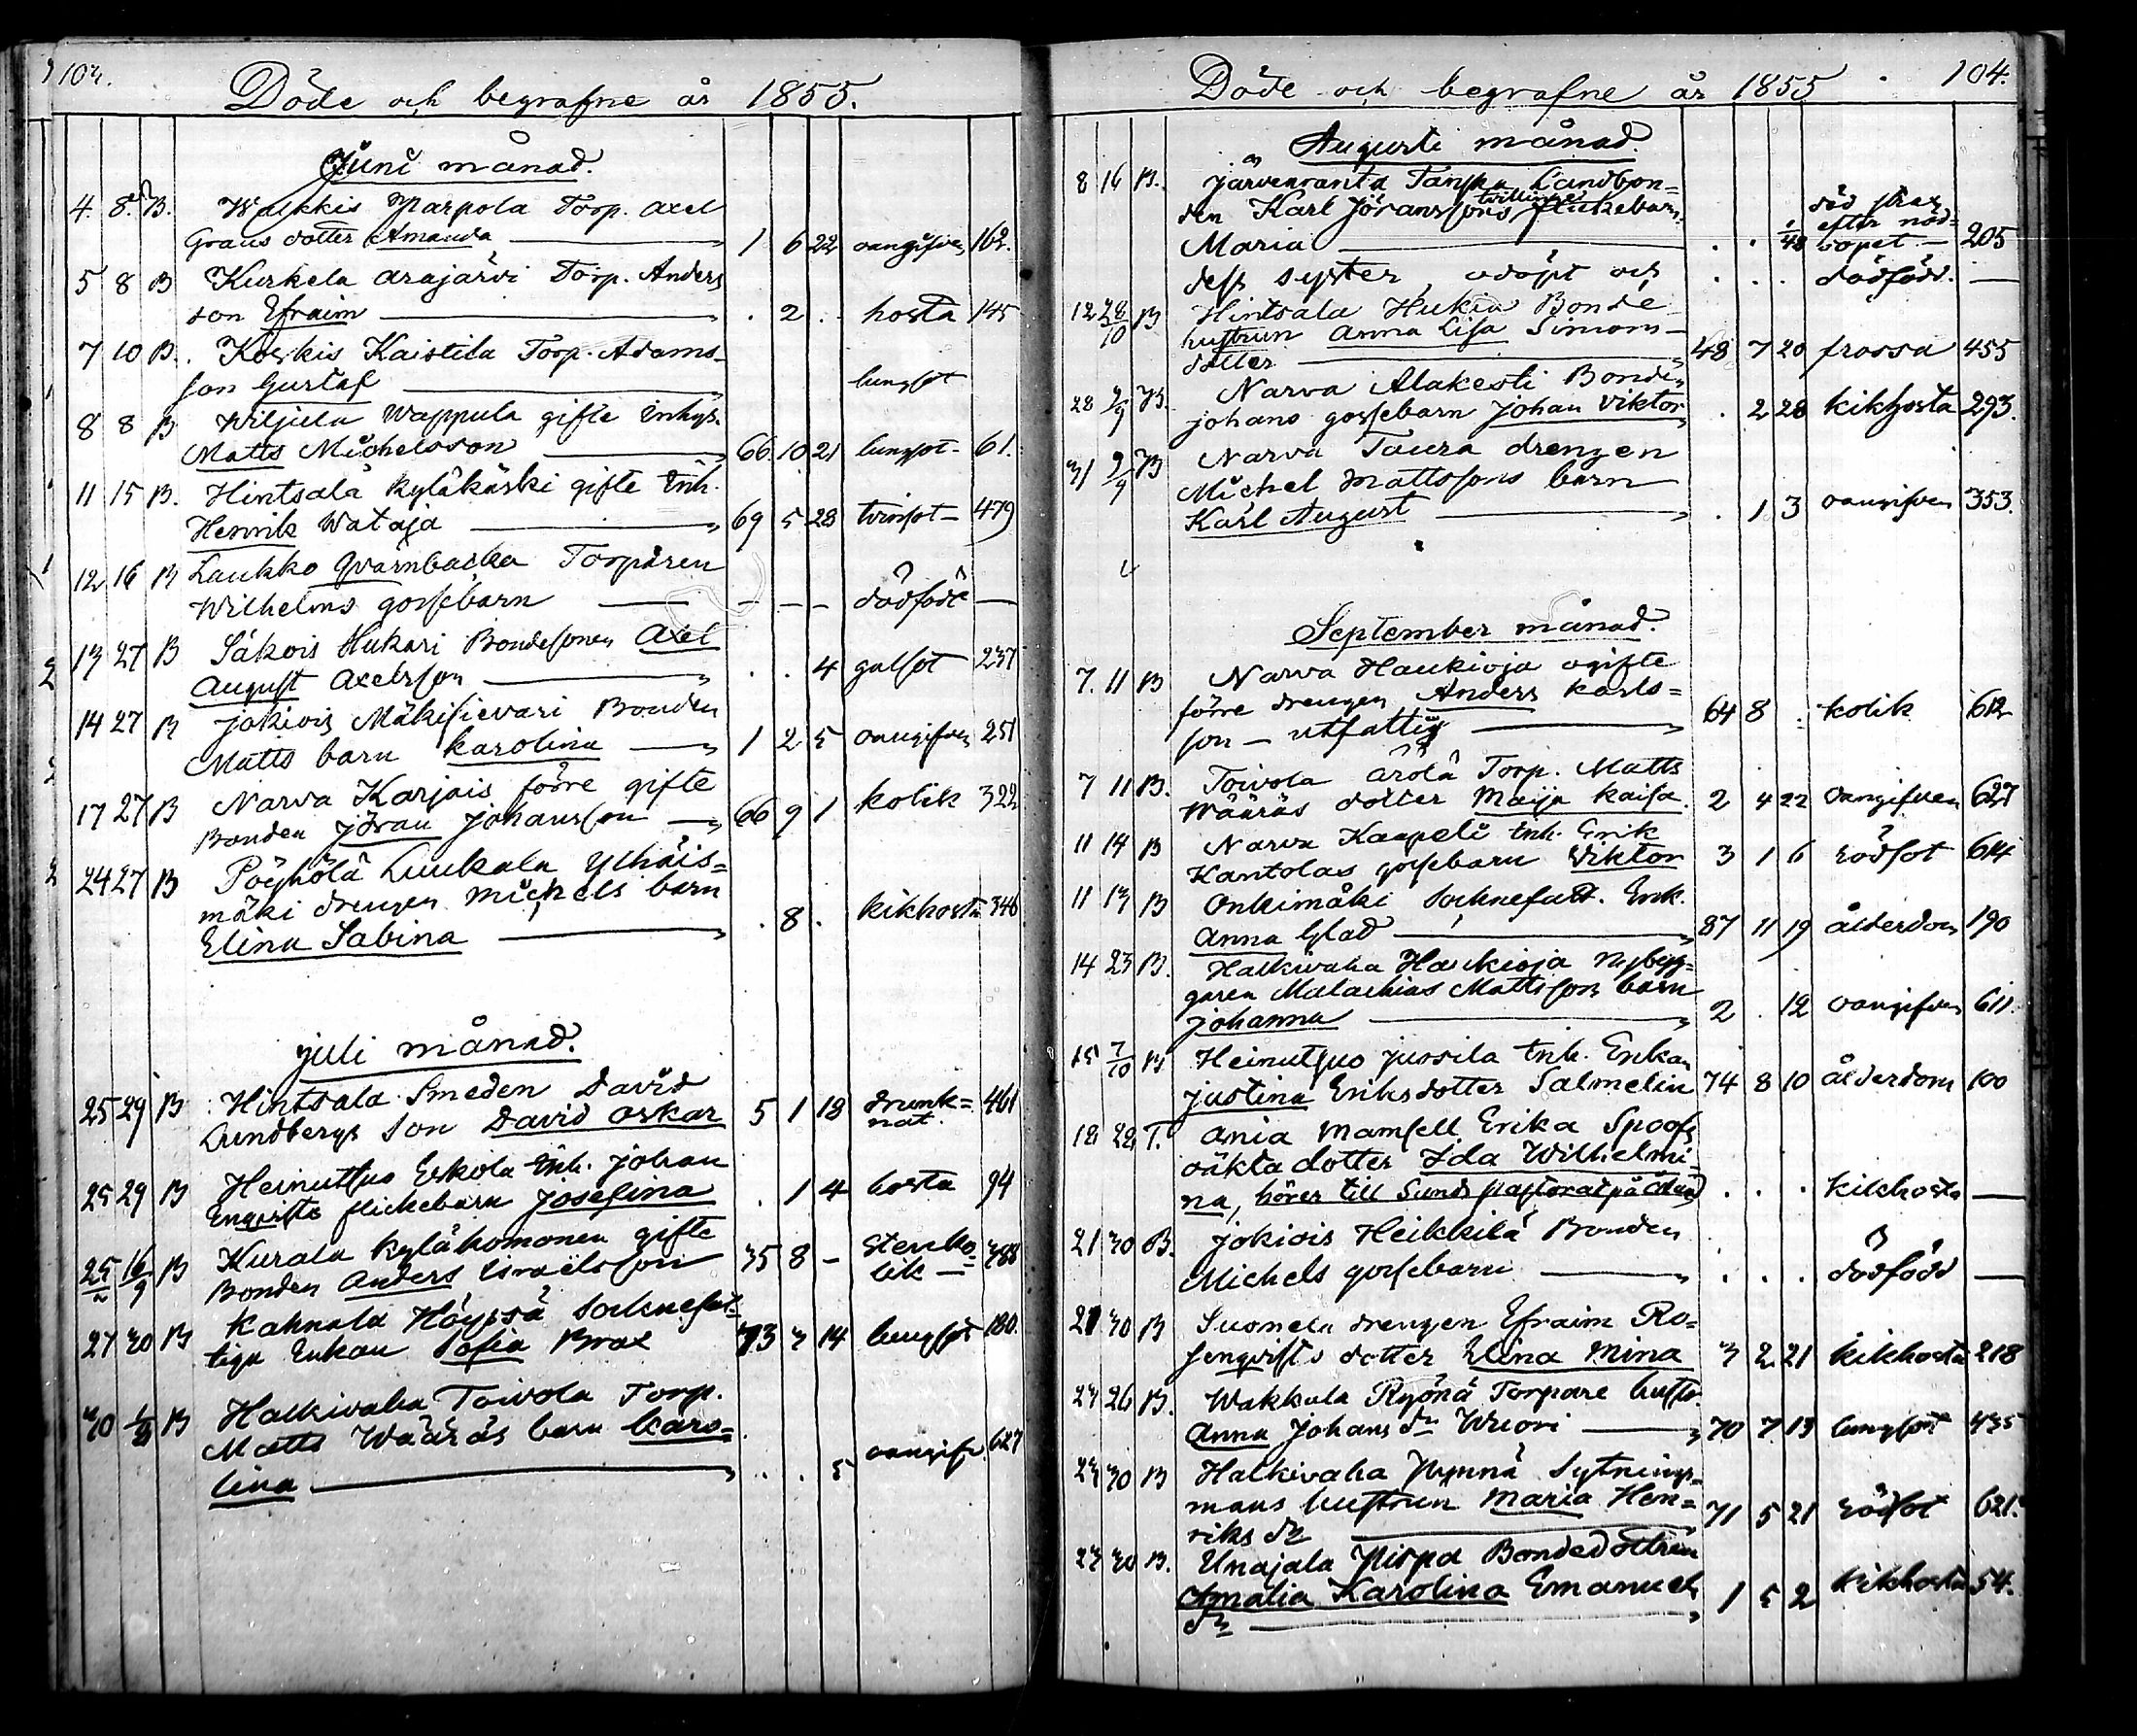 103.
Döde och begrafne år 1855.
Juni månad.
4. 8. B. Walkkis Yrarpola Torp. Axel
Graus dotter Amanda 1 6 22 oangifven 162.
5 8 B Kurkela Arajärvi Torp. Anders
son Efraim . 2 . . hosta 145
7 10 B. Koskis Kaistila Torp. Adams
son Gustaf lungsot
8 8 B Wiljula Wappula gifte Inhys.
Matts Michelsson 66 10 21 lungsot 61.
11 15 B. Hintsala Kyläkäski gifte Inh.
Henrik Wataja 69 5 28 tvinsot 479
12 16 B Laukko Qvarnbacka Torparen
Wilhelms gossebarn — — — dödfödt —
13 27 B Säkois Hukari Bondesonen Axel
August Axelsson . . 4 gulsot 237
14 27 B Jokiois Mäkisievari Bonden
Matts barn Karolina 1 2 5 oangifven 251
17 27 B Narva Karjais förre gifte
Bonden Jöran Johansson 66 9 1 kolik 322
24 27 B Pöyhölä Luukala Ylhäis=
mäki drengen Michels barn
Elina Sabina . 8 . kikhosta 346
Juli månad.
25 29 B Hintsala Smeden David
Lundbergs son David Oskar 5 1 18 drunk= nat. 461
25 29 B Heinutsuo Eskola Inh. Johan
Enqvists flickebarn Josefina . 1 4 hosta 94
25 16/9 B Kurala Kylähomonen gifte
Bonden Anders Israelsson 35 8 — Stenko= lik 388
27 30 B Kahnala Höyssä Socknefat=
tiga Enkan Sofia Brax 73 3 14 lungsot 180.
30 1/8 B Halkivaha Toivola Torp.
Matts Wääräs barn Karo=
lina . . 5 oangifv. 627
Döde och begrafne år 1855 104.
Augusti månad.
8 16 B. Järvenranta Tanska Landbon=
den Karl Jöranssons tvillinge flickebarn
Maria . . 1/48 död strax efter nöd= dopet 205
dess syster, odöpt och . . . dödfödd. —
12 28/10 B Hintsala Hukia Bonde
hustrun Anna Lisa Simons-
dotter 48 7 20 frossa 455
28 2/9 B. Narva Alakesti Bonden
Johans gossebarn Johan Viktor . 2 28 kikhosta 293.
31 9/9 B Narva Taura drengen
Michel Mattssons barn
Karl August . 1 3 oangifven 353.
September månad.
7. 11 B Narva Haukioja ogifte
förre drengen Anders Karls=
son — utfattig 64 8 . kolik 612
7 11 B. Toivola Ärölä Torp. Matts
Wääräs dotter Maija Kaisa. 2 4 22 oangifven 627
11 14 B Narva Kaapeli Inh. Erik
Kantolas gossebarn Viktor 3 1 6 rödsot 614
11 13 B Onkimäki Socknefatt. Enk.
Anna Glad 87 11 19 ålderdom 190
14 23 B. Halkivaha Haukioja Nybyg=
garen Malachias Mattssons barn
Johanna 2 . 12 oangifven 611.
15 7/10 B Heinutsuo Jussila Inh. Enkan
Justina Eriksdotter Salmelin 74 8 10 ålderdom 100
18 22 T. Ania Mamsell Erika Spoofs
oäkta dotter Ida Wilhelmi=
na, hörer till Sunds pastorat på Åland . . . kikhosta —
21 30 B. Jokiois Heikkilä Bonden
Michels gossebarn . . . dödfödd —
21 30 B Suomela drengen Efraim Ro=
senqvists dotter Elina Mina 3 2 21 kikhosta 218
23 26 B. Wakkala Ryönä Torpare hustr.
Anna Johans dr Wuori 70 7 13 lungsot 435
23 30 B Halkivaha Nymnä Sytnings=
mans hustrun Maria Hen=
riks dr 71 5 21 rödsot 621.
23 30 B. Unajala Pispa Bondedottren
Amalia Karolina Emanuels
dr 1 5 2 kikhosta 54.